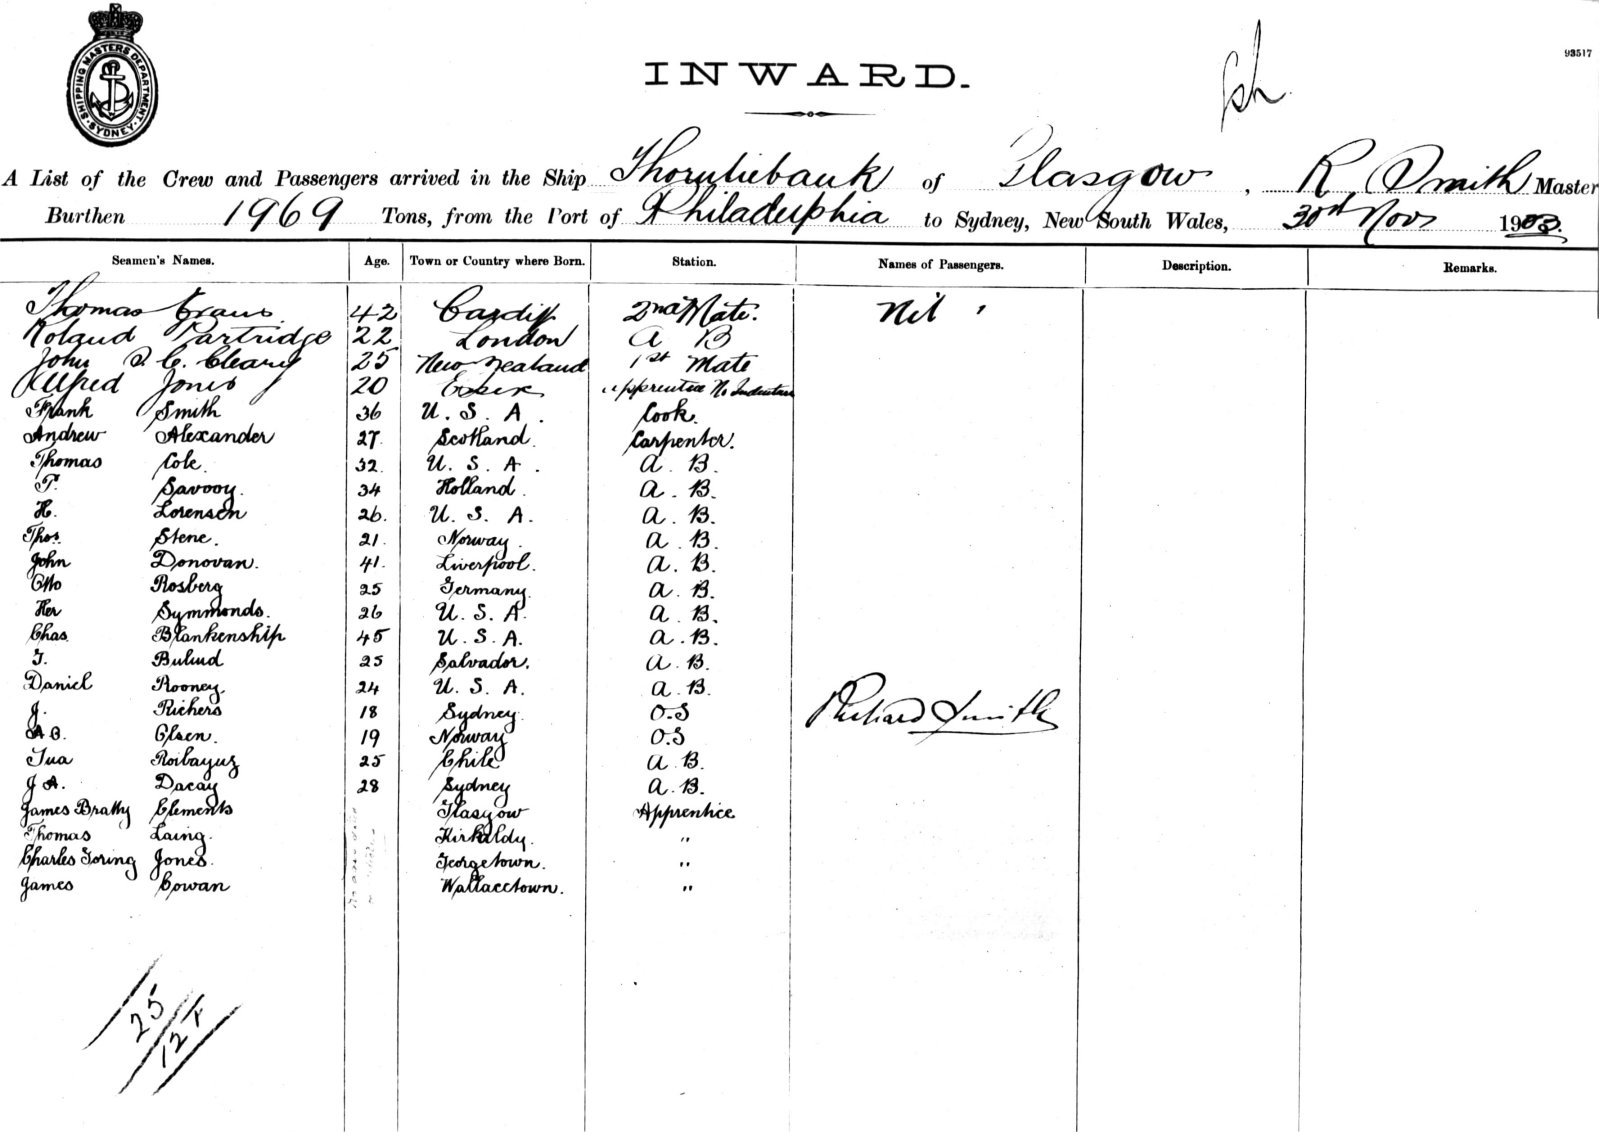 SHIPPING MASTERS DEPARTMENT
SYDNEY
93517
INWARD.
A List of the Crew and Passengers arrived in the Ship Thornliebank of Glasgow, R. Smith Master
Burthen 1969 Tons, from the Port of Philadelphia to Sydney, New South Wales, 30th Novr 1903.
Seamen's Names. Age. Town or Country where Born. Station. Names of Passengers. Description. Remarks.
Thomas Evans 42 Cardiff 2nd Mate. Nil
Roland Partridge 22 London A B
John Cleary 25 New Zealand 1st Mate
Alfred Jones 20 Essex Apprentice No Indenture
Frank Smith 36 U. S. A. Cook.
Andrew Alexander 27 Scotland. Carpenter.
Thomas Cole. 32. U. S. A. A. B.
T. Savooy. 34 Holland. A. B.
H. Lorensen 26. U. S. A. A. B.
Thos. Stene. 21. Norway. A. B.
John Donovan. 41. Liverpool. A. B.
Otto Rosberg 25 Germany. A. B.
Her Symmonds. 26 U. S. A. A. B.
Chas. Blankenship 45 U. S. A. A. B.
25 Salvador. A. B.
Daniel Rooney. 24 U. S. A. A. B.
J. Richers 18 Sydney. O.S
Olsen. 19 Norway O.S
25 Chile A. B.
J A. Dacay 28 Sydney A. B.
Richard Smith
James Bratty Clements Glasgow Apprentice
Thomas Laing. Kirkaldy. "
Charles Jones. Georgetown. "
James Cowan Wallacetown. "
25